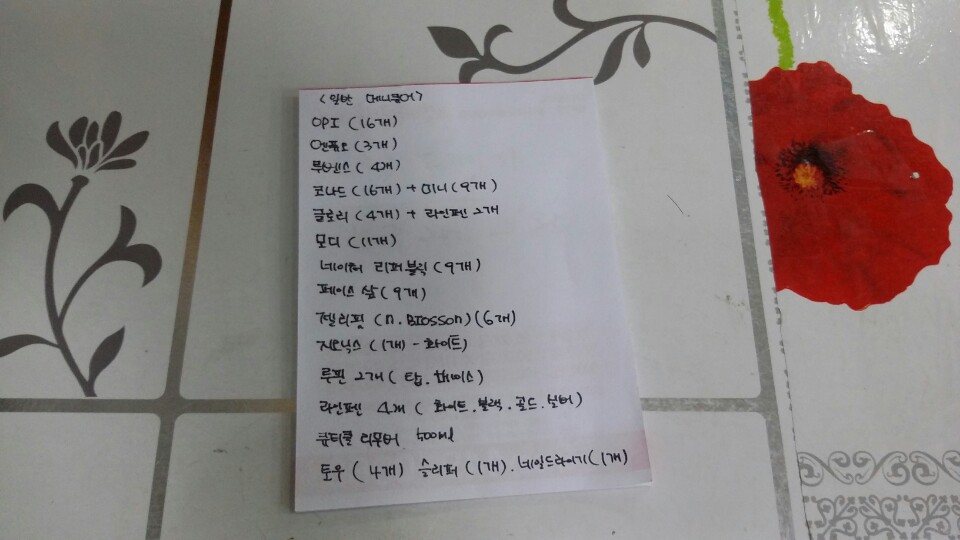 <일반 메니큐어>
OPI (16개)
엔퓨오 (3개)
루벤스 (4개)
코나드 (16개) + 미니 (9개)
글로리 (4개) + 라인펜 2개
모디 (11개)
네이쳐 리퍼블릭 (9개)
페이스 샵 (9개)
젤리핏 (n.BIosson) (6개)
지오닉스 (1개) - 화이트)
루핀 2개 (탑. 베이스)
라인펜 4개 (화이트. 블랙. 골드. 실버)
큐티클 리무버 500ml
토우 (4개) 슬리퍼 (1개). 네일드라이기 (1개)